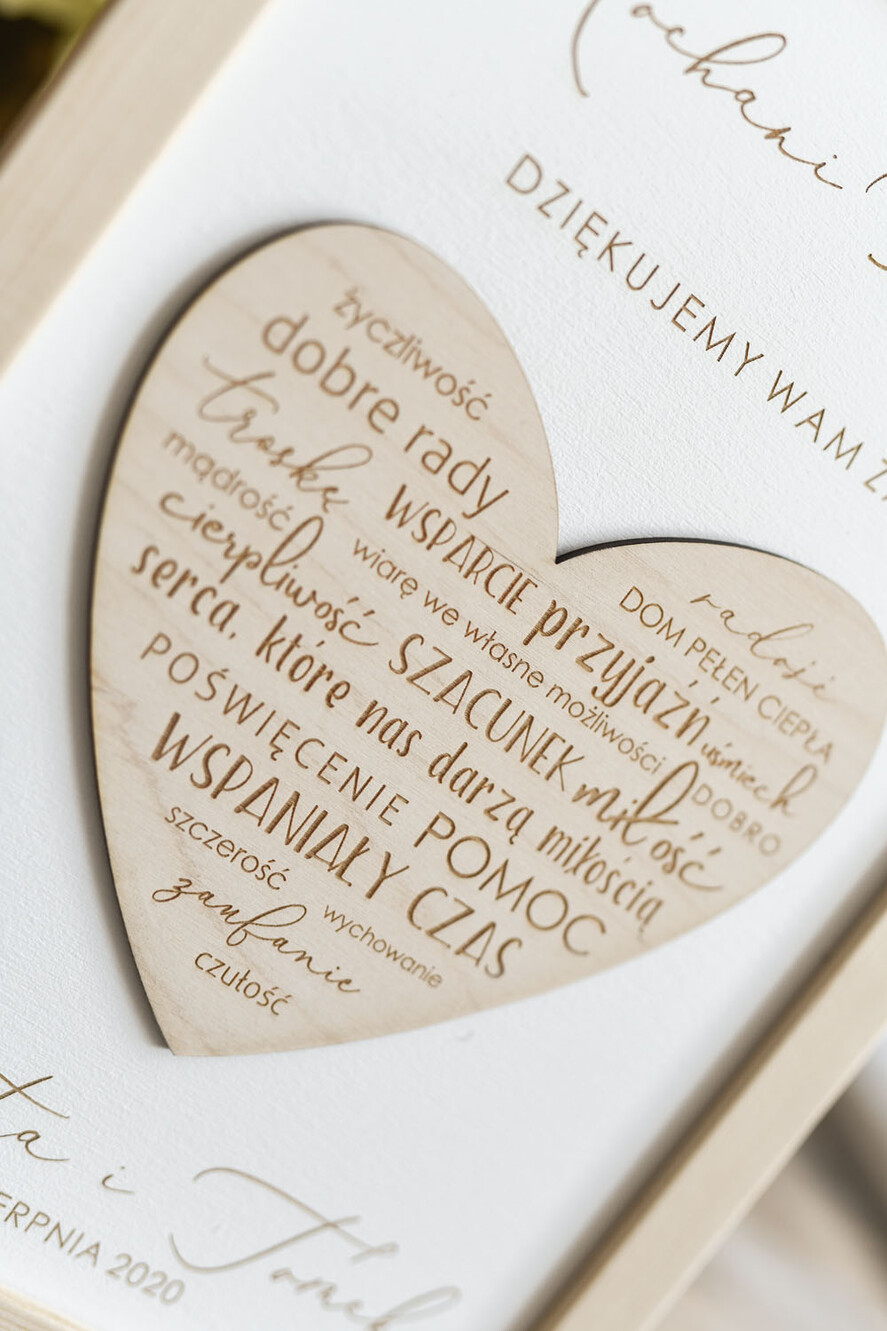 Kochani
DZIĘKUJEMY WAM ZA
życzliwość
dobre rady
troskę WSPARCIE przyjaźń uśmiech
radość
DOM PEŁEN CIEPŁA
mądrość wiarę we własne możliwości DOBRO
cierpliwość SZACUNEK miłość
serca, które nas darzą miłością
POŚWIĘCENIE POMOC
WSPANIAŁY CZAS
szczerość wychowanie
zaufanie
czułość
ta i Tomek
SIERPNIA 2020